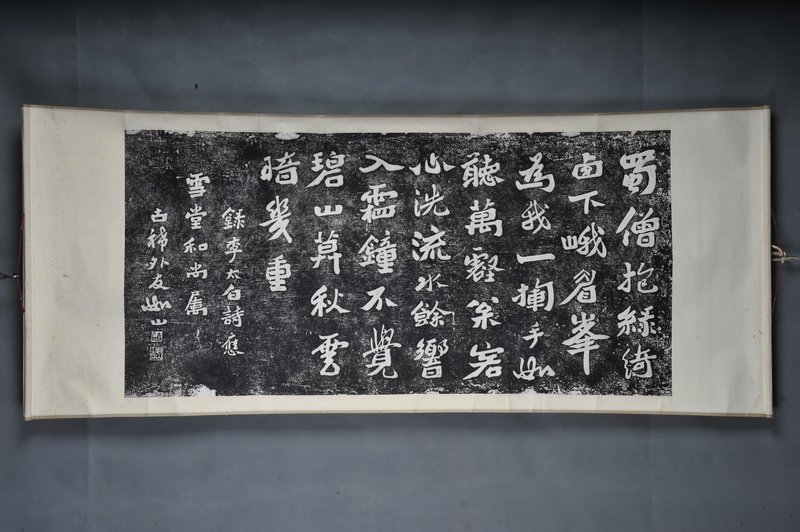 蜀僧抱綠綺
西下峨眉峯
為我一揮手如
聽萬壑枀客
心洗流水餘響
入霜鐘不覺
碧山莫秋雲
暗幾重
錄李太白詩應
雪堂和尚屬
古稀外友如山